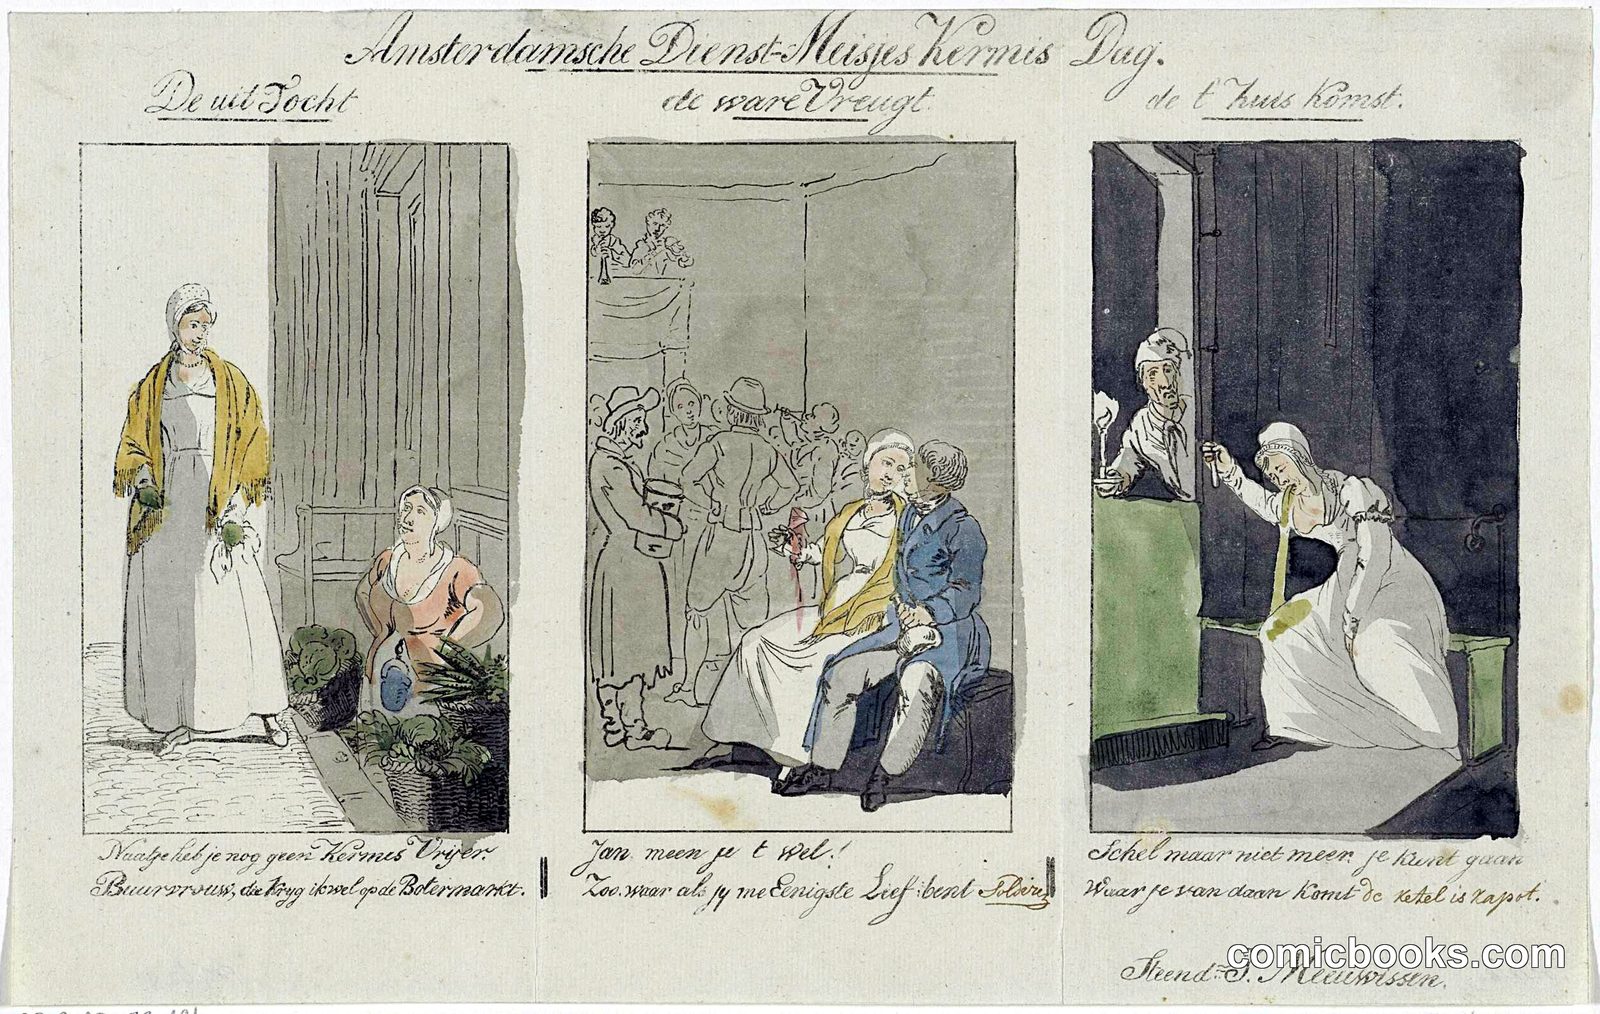 Amsterdamsche Dienst-Meisjes Kermis Dag.
De uit Tocht
de ware Vreugt
de t' huis Komst.
Naatje heb je nog geen Kermis Vrijer.
Buurvrouw, die kryg ik wel op de Botermarkt.
Jan meen je t wel!
Zoo waar als jy me Eenigste Lief bent
Schel maar niet meer je kunt gaan
Waar je van daan Komt de ketel is kapot.
Steend. J. Meeuwissen.
comicbooks.com